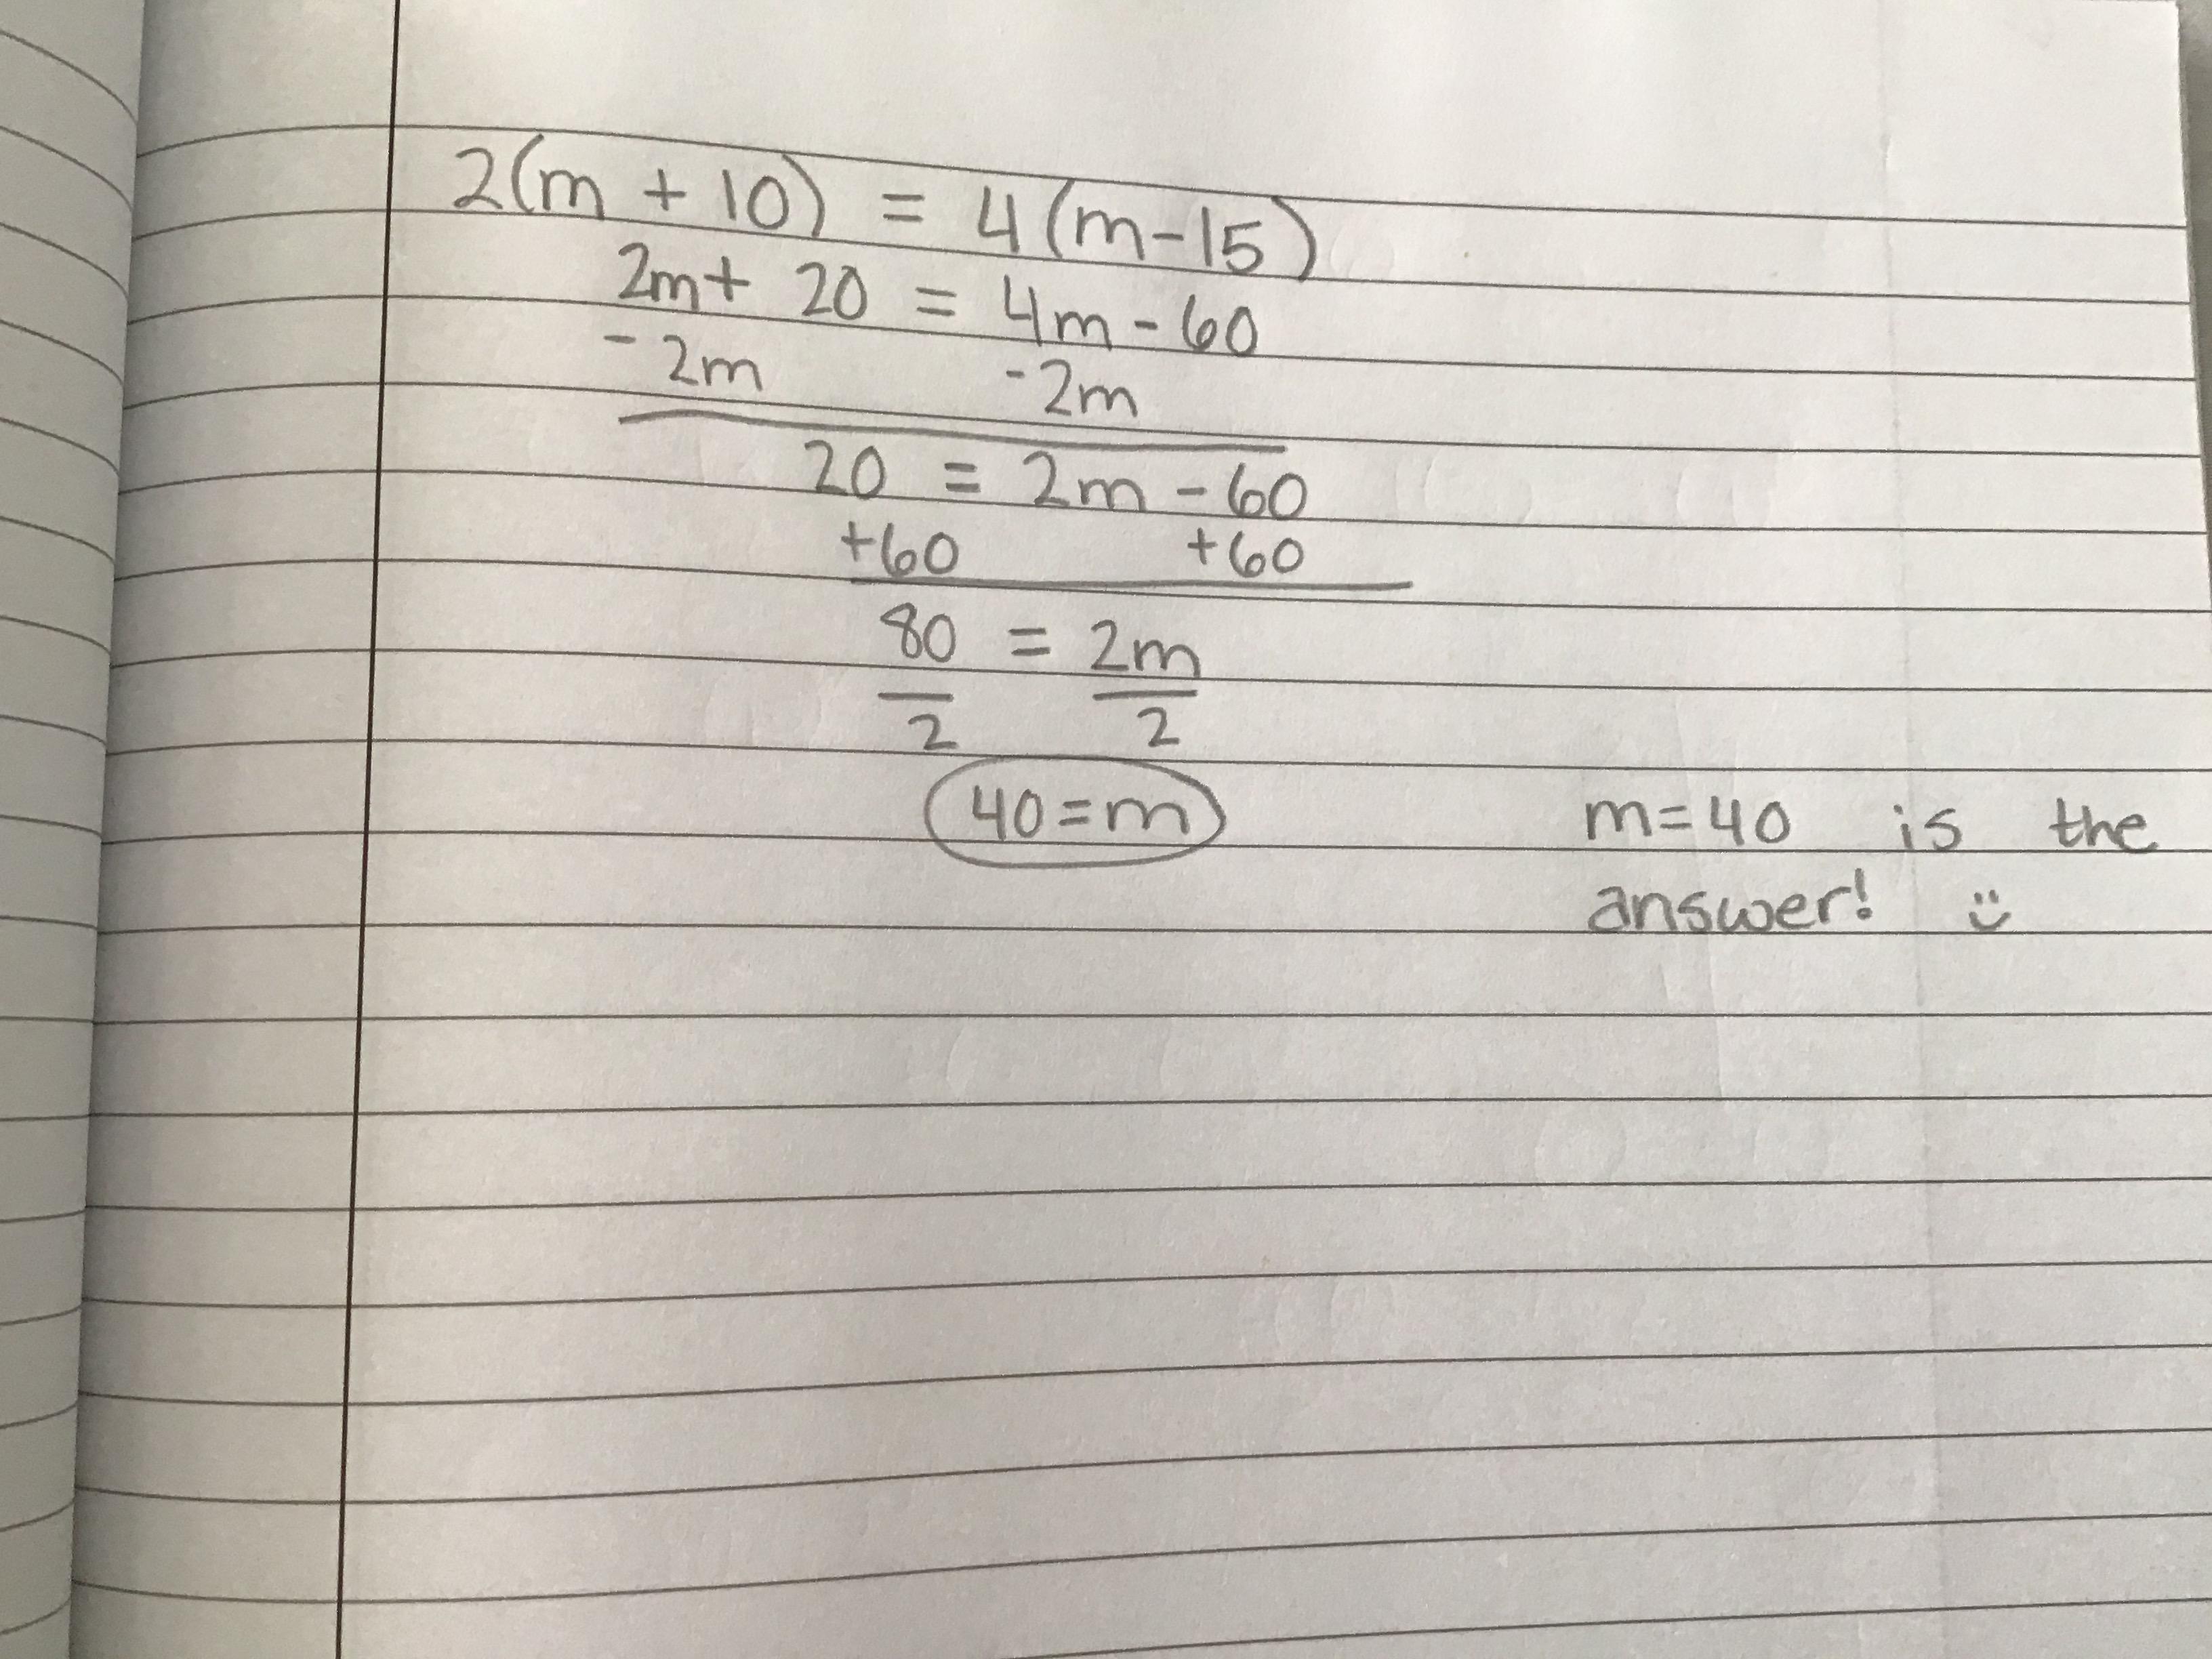 2(m + 10) = 4(m-15)
2m + 20 = 4m - 60
-2m -2m
20 = 2m - 60
+60 +60
80 = 2m
2 2
40=m m=40 is the
answer! :)